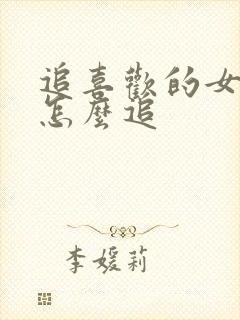 追喜歡的女
怎麼追
李媛莉